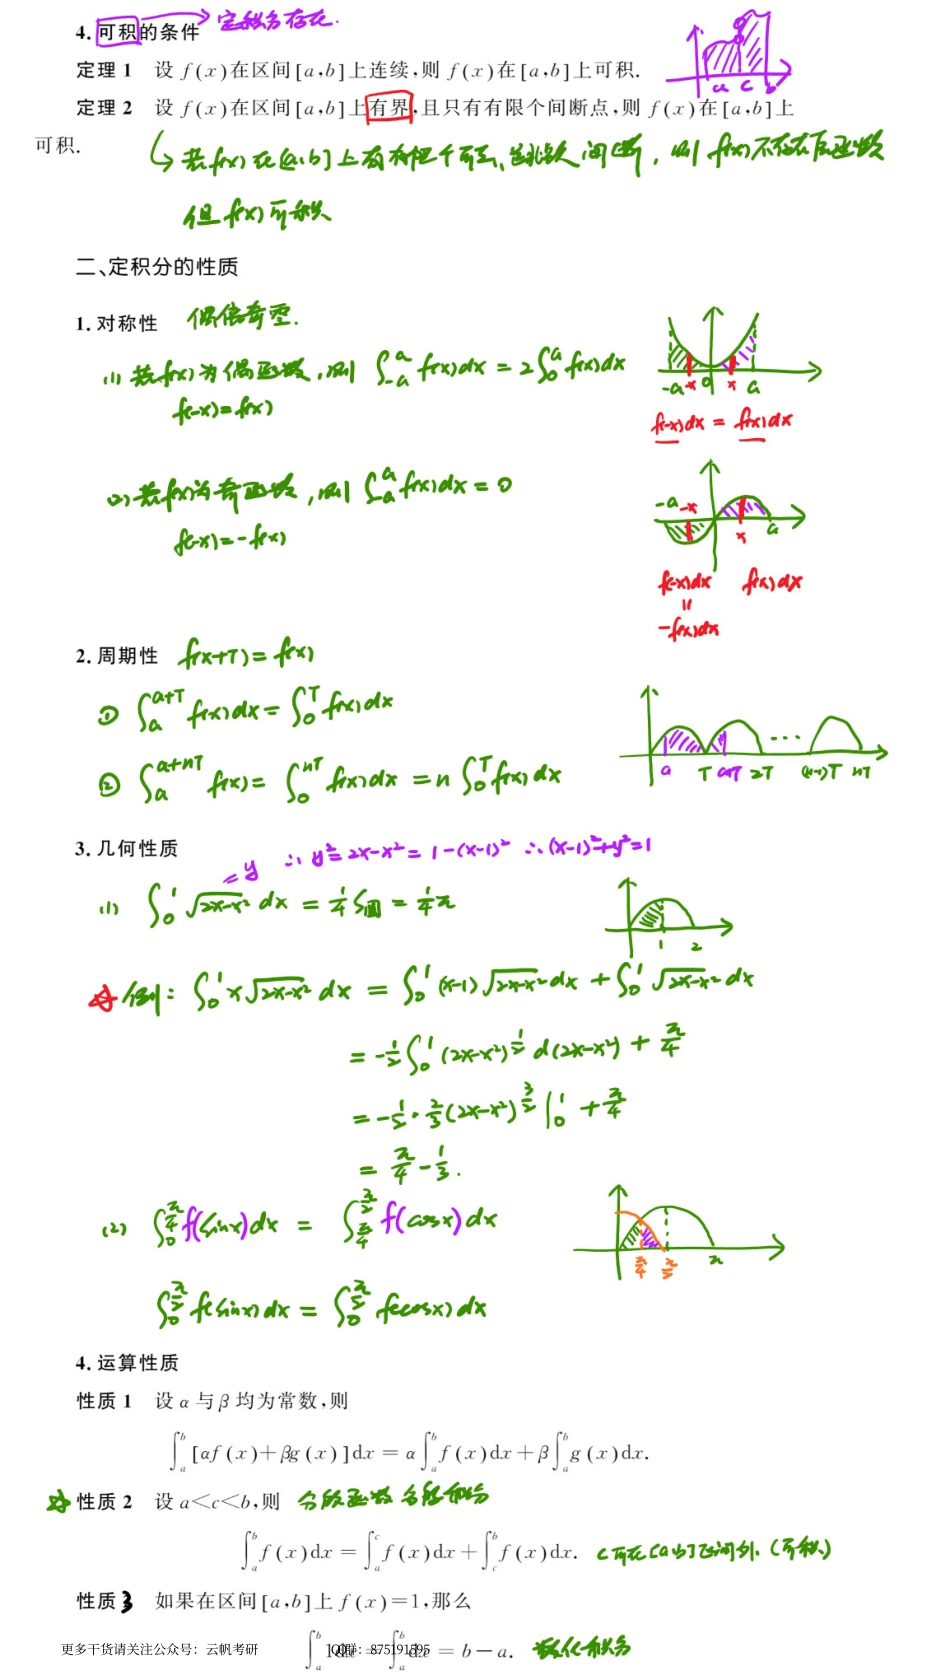 4. 可积的条件 定积分存在.
定理 1 设 f(x)在区间[a,b]上连续,则 f(x)在[a,b]上可积.
a c b
定理 2 设 f(x)在区间[a,b]上有界,且只有有限个间断点,则 f(x)在[a,b]上
可积.
↳ 若f(x)在[a,b]上有有限个可去、跳跃间断,则f(x)不存在原函数
但f(x)可积
二、定积分的性质
1. 对称性 偶倍奇零.
(1) 若f(x)为偶函数,则 ∫_{-a}^{a} f(x)dx = 2∫_0^a f(x)dx
f(-x)=f(x)
-a -x 0 x a
f(-x)dx = f(x)dx
(2) 若f(x)为奇函数,则 ∫_{-a}^{a} f(x)dx = 0
f(-x)=-f(x)
-a -x x a
f(-x)dx f(x)dx
=
-f(x)dx
2. 周期性 f(x+T)=f(x)
① ∫_a^{a+T} f(x)dx = ∫_0^T f(x)dx
② ∫_a^{a+nT} f(x) = ∫_0^{nT} f(x)dx = n∫_0^T f(x)dx
a T a+T 2T ... (n-1)T nT
3. 几何性质
=y ∴ y²=2x-x²=1-(x-1)² ∴(x-1)²+y²=1
(1) ∫_0^1 √(2x-x²) dx = 1/4 S圆 = 1/4 π
1 2
例: ∫_0^1 x√(2x-x²) dx = ∫_0^1 (x-1)√(2x-x²) dx + ∫_0^1 √(2x-x²) dx
= -1/2 ∫_0^1 (2x-x²)^{1/2} d(2x-x²) + π/4
= -1/2 · 2/3 (2x-x²)^{3/2} |_0^1 + π/4
= π/4 - 1/3.
(2) ∫_0^{π/4} f(sinx)dx = ∫_{π/4}^{π/2} f(cosx)dx
π/4 π/2 π
∫_0^{π/2} f(sinx)dx = ∫_0^{π/2} f(cosx)dx
4. 运算性质
性质 1 设 α 与 β 均为常数,则
∫_a^b [αf(x)+βg(x)]dx = α∫_a^b f(x)dx + β∫_a^b g(x)dx.
☆ 性质 2 设 a<c<b,则 分段函数 分段积分
∫_a^b f(x)dx = ∫_a^c f(x)dx + ∫_c^b f(x)dx. c可在[a,b]区间外.(可积)
性质 3 如果在区间[a,b]上 f(x)=1,那么
∫_a^b 1dx = ∫_a^b dx = b-a.
更多干货请关注公众号：云帆考研 QQ群：875191595